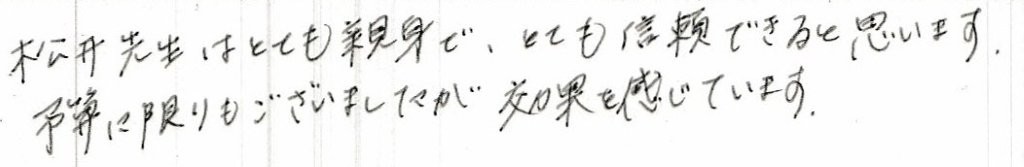 松井先生はとても親身で、とても信頼できると思います.
予算に限りもございましたが 効果を感じています.